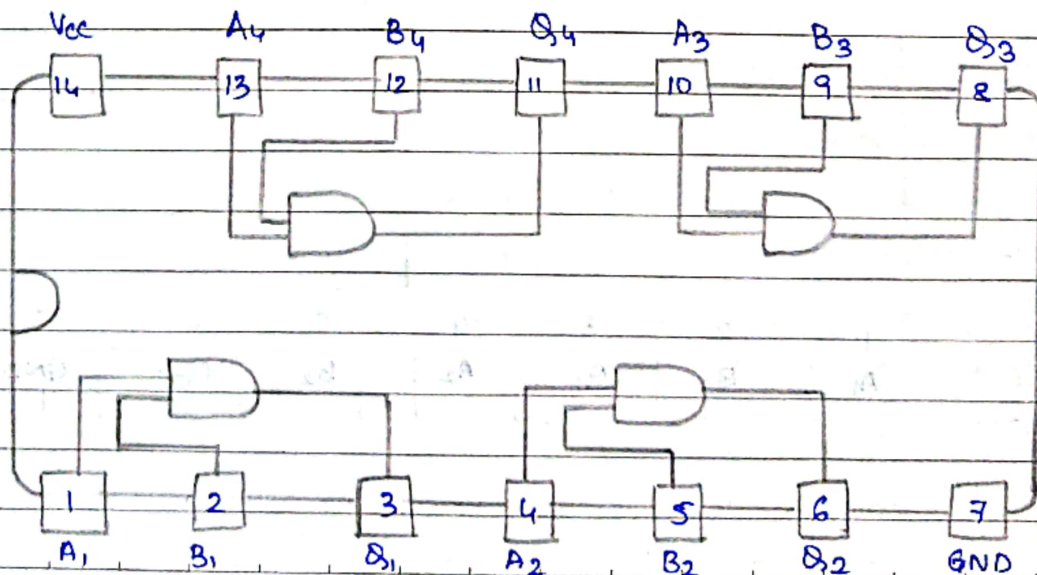 Vcc A4 B4 Q4 A3 B3 Q3
14 13 12 11 10 9 8
1 2 3 4 5 6 7
A1 B1 Q1 A2 B2 Q2 GND